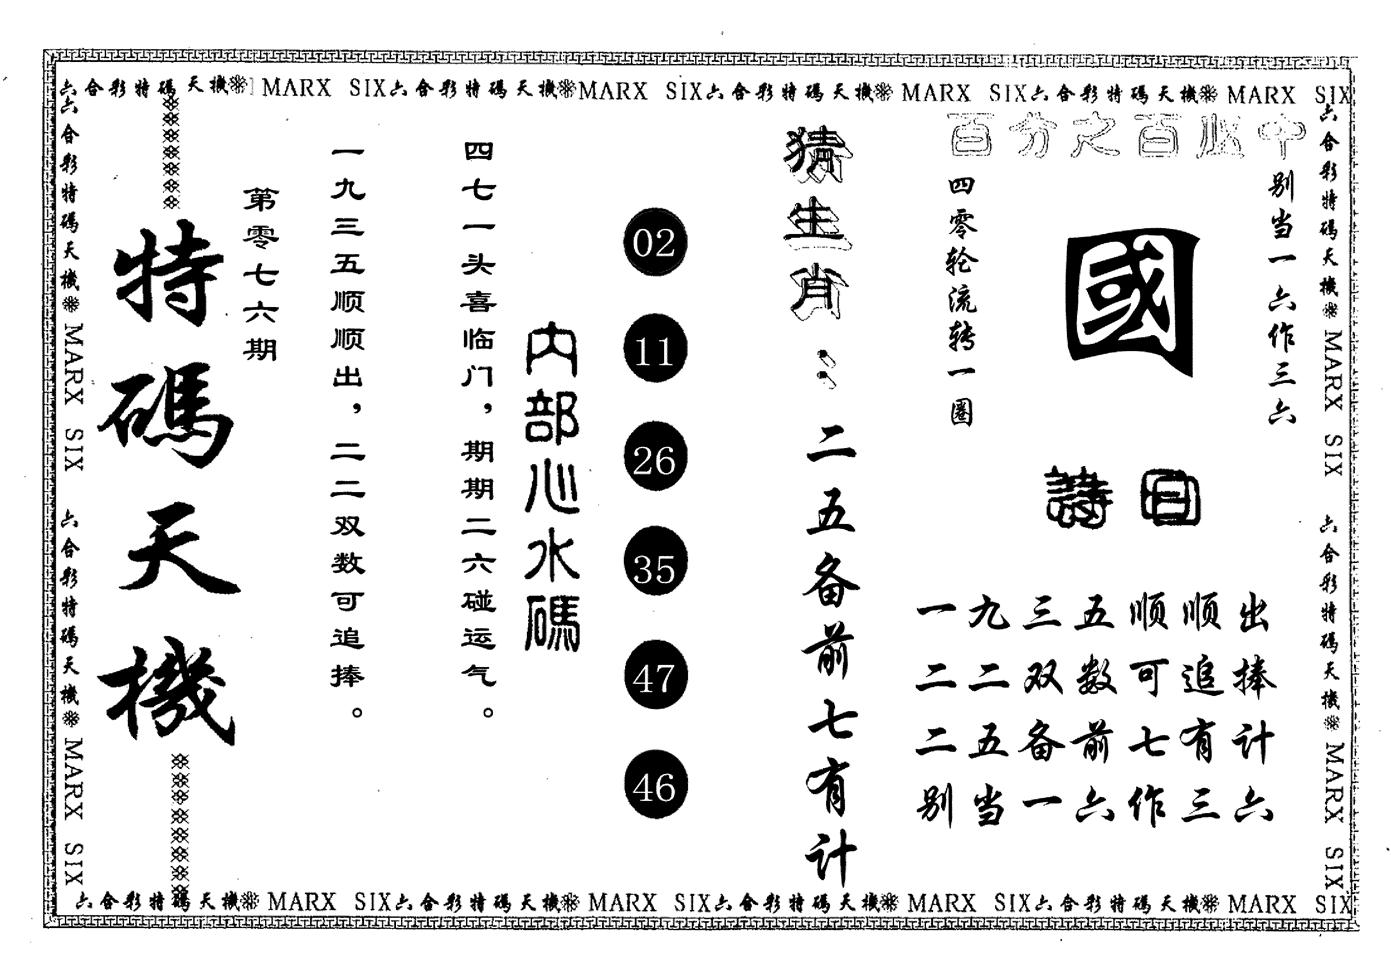 六合彩特碼天機 MARX SIX六合彩特碼天機 MARX SIX六合彩特碼天機 MARX SIX六合彩特碼天機 MARX SIX
六合彩特碼天機 MARX SIX
六合彩特碼天機 MARX SIX
特碼天機
第零七六期
一九三五顺顺出，二二双数可追捧。
四七一头喜临门，期期二六碰运气。
内部心水碼
02
11
26
35
47
46
猜生肖：二五备前七有计
百分之百必中
四零轮流转一圈
國
别当一六作三六
詩曰
一九三五顺顺出
二二双数可追捧
二五备前七有计
别当一六作三六
六合彩特碼天機 MARX SIX
六合彩特碼天機 MARX SIX
六合彩特碼天機 MARX SIX六合彩特碼天機 MARX SIX六合彩特碼天機 MARX SIX六合彩特碼天機 MARX SIX